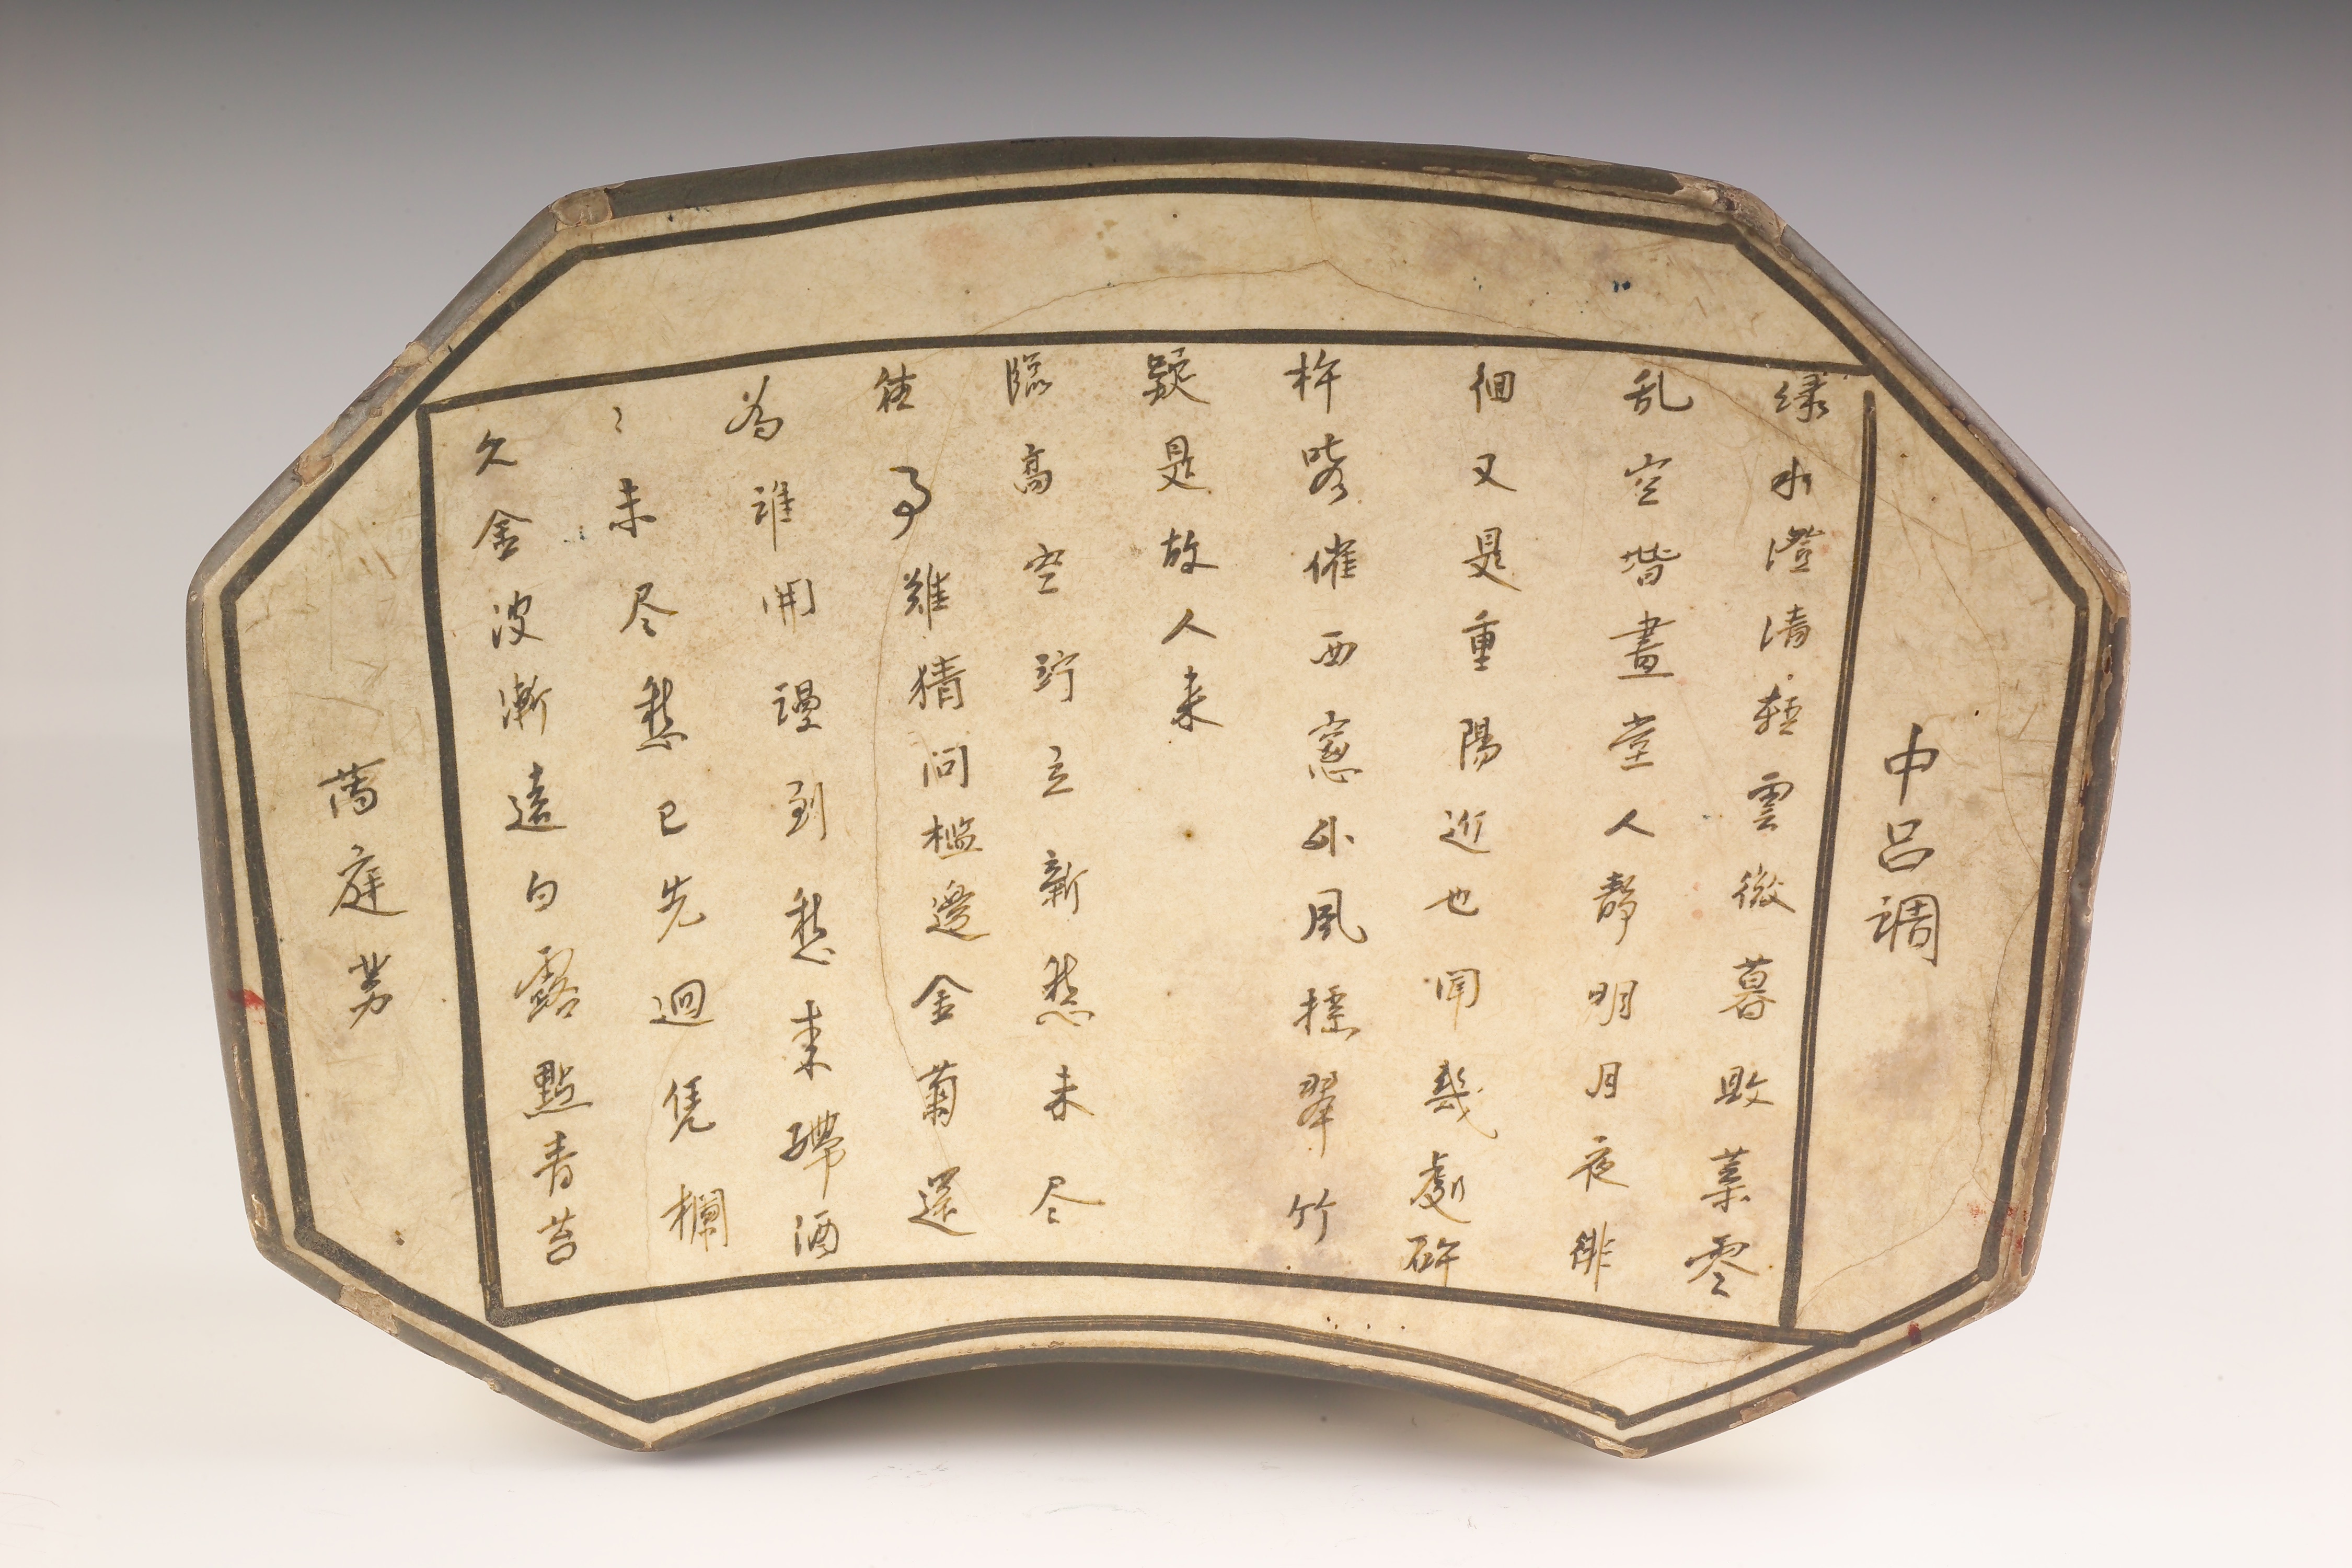 中呂調
綠水澄清輕雲微暮敗葉零
乱空堦晝堂人靜明月夜徘
徊又是重陽近也聞幾處砧
杵聲催西窓外風搖翠竹
疑是故人来
臨高空竚立新愁未尽
往事難猜問檻邊金菊還
為誰開謾到愁来殢酒
〻未尽愁已先迴凭欄
久金波漸遠白露點青苔
滿庭芳